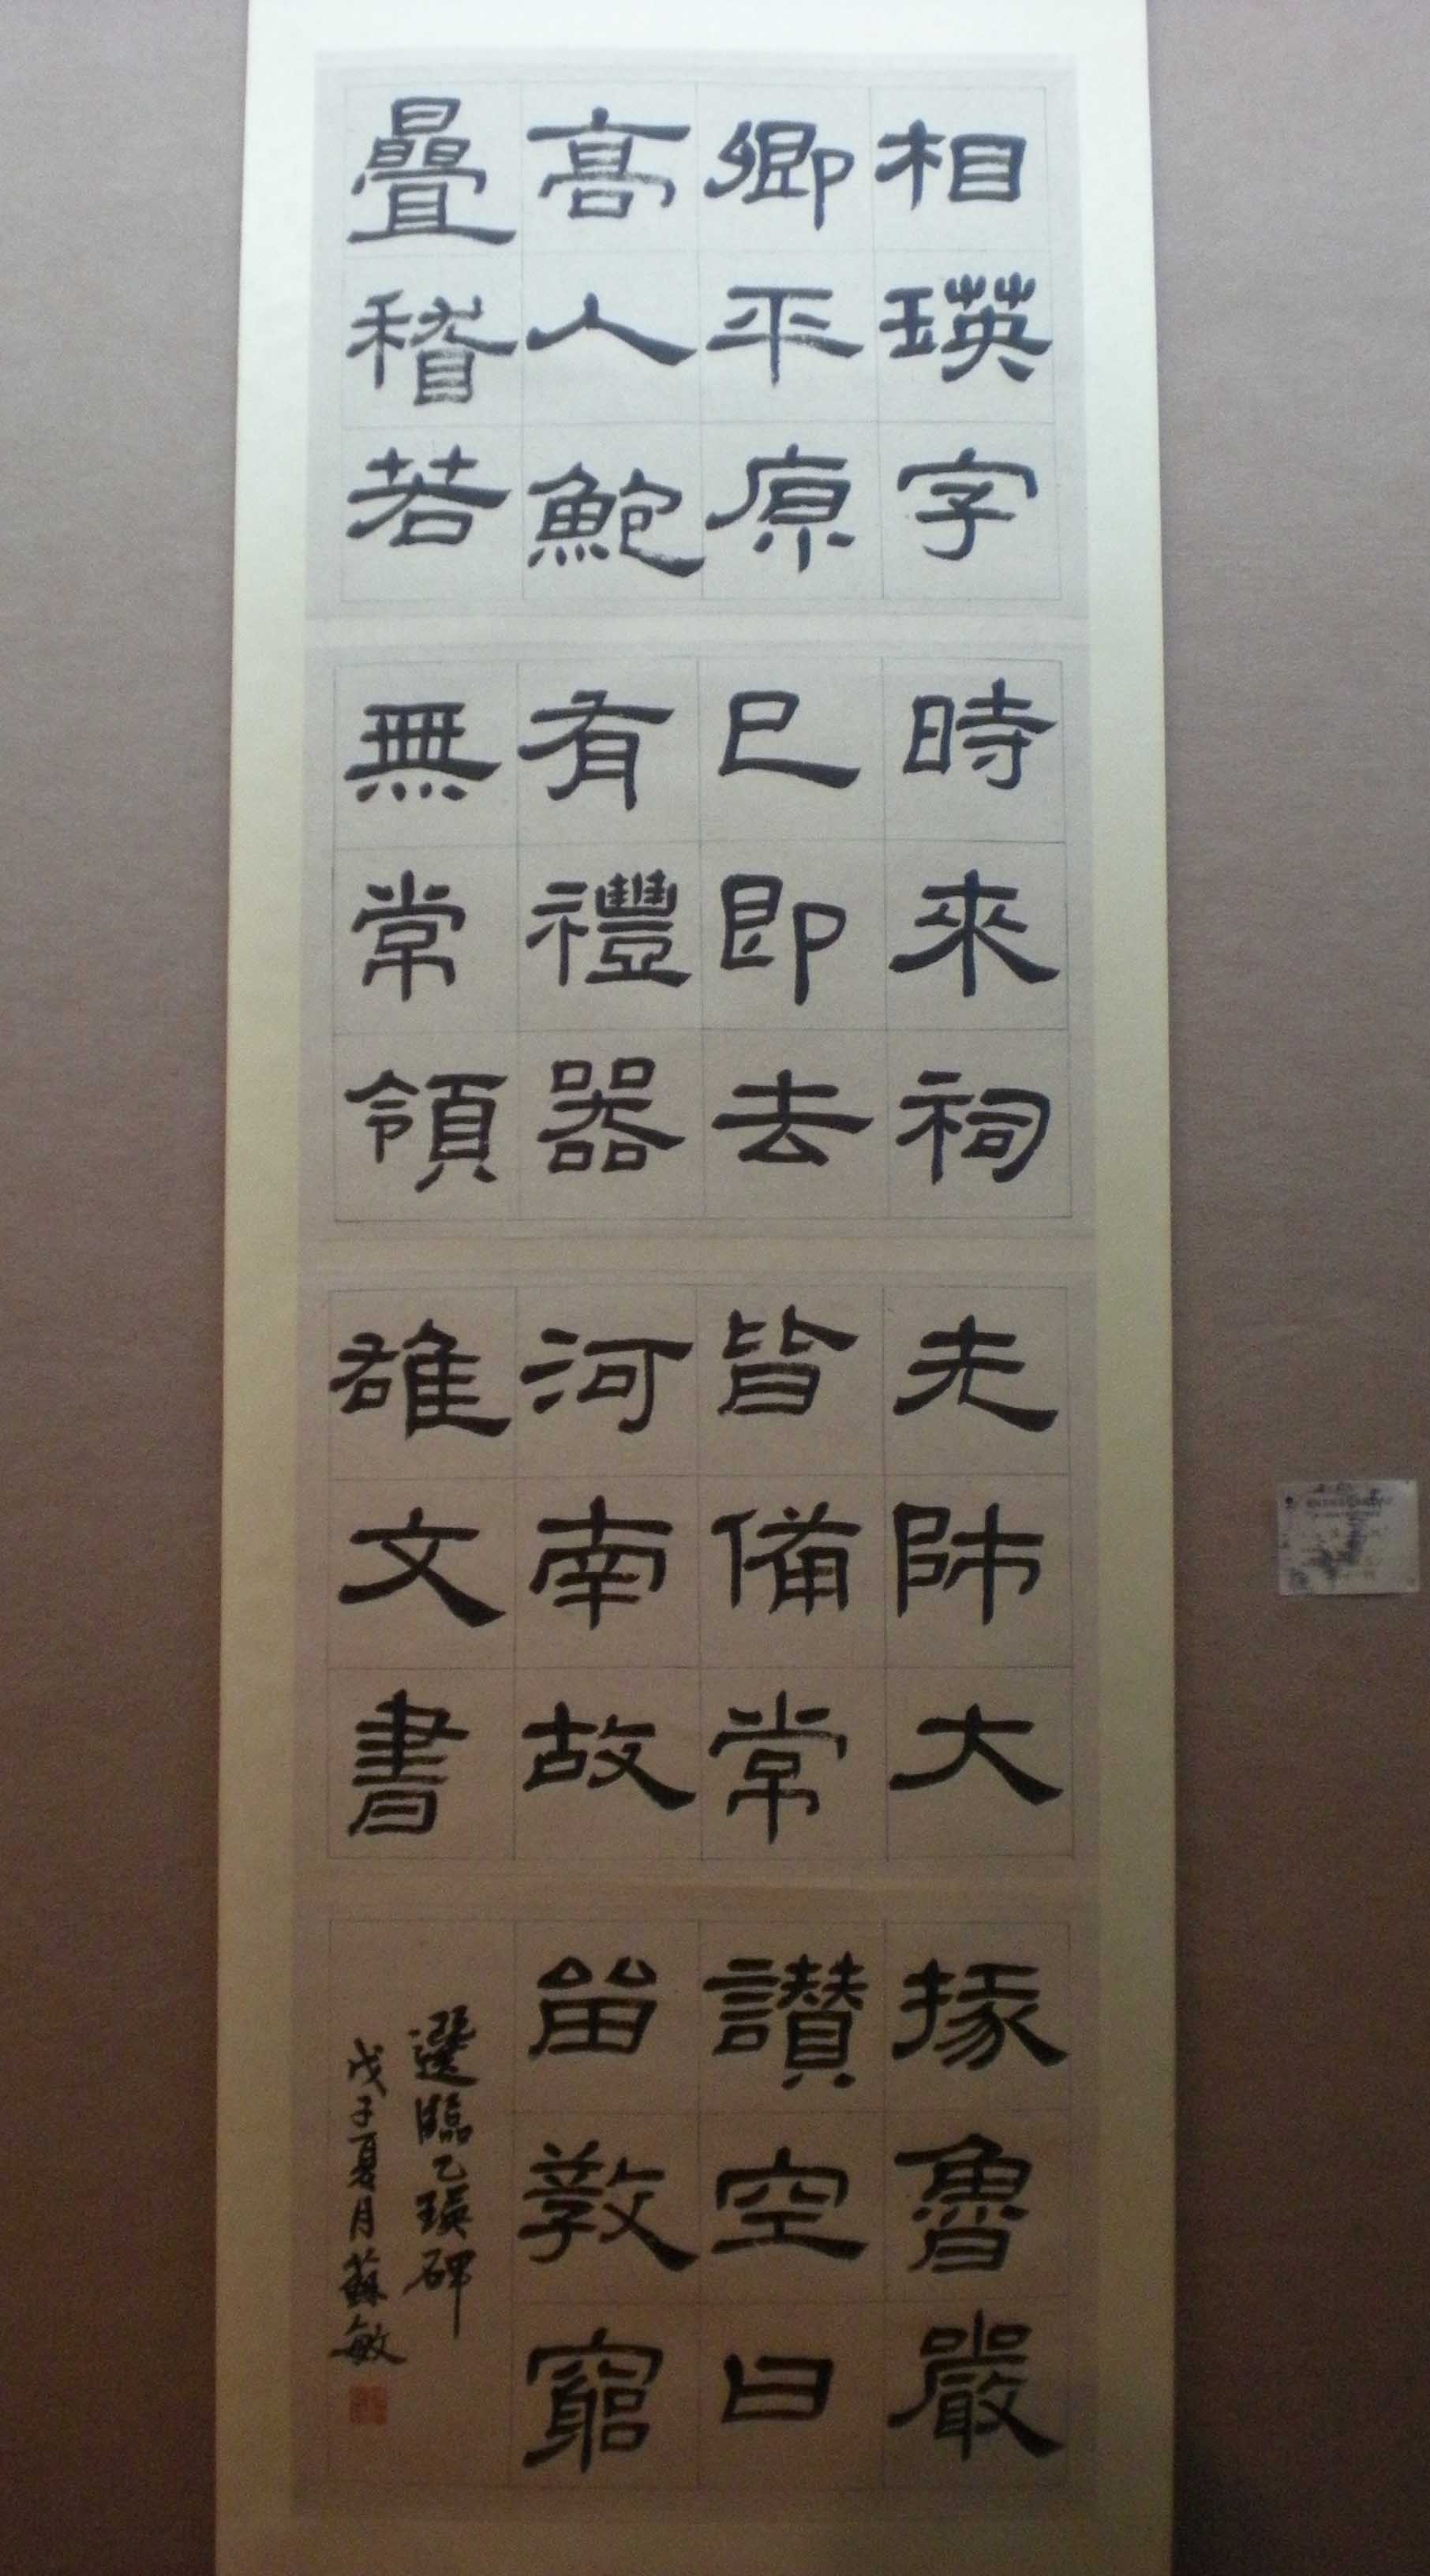 相瑛字
卿平原
高人鮑
疊稽若
時來祠
已即去
有禮器
無常領
先師大
皆備常
河南故
雄文書
掾魯嚴
讚空曰
畱教窮
選臨乙瑛碑
戊子夏月蘇敏